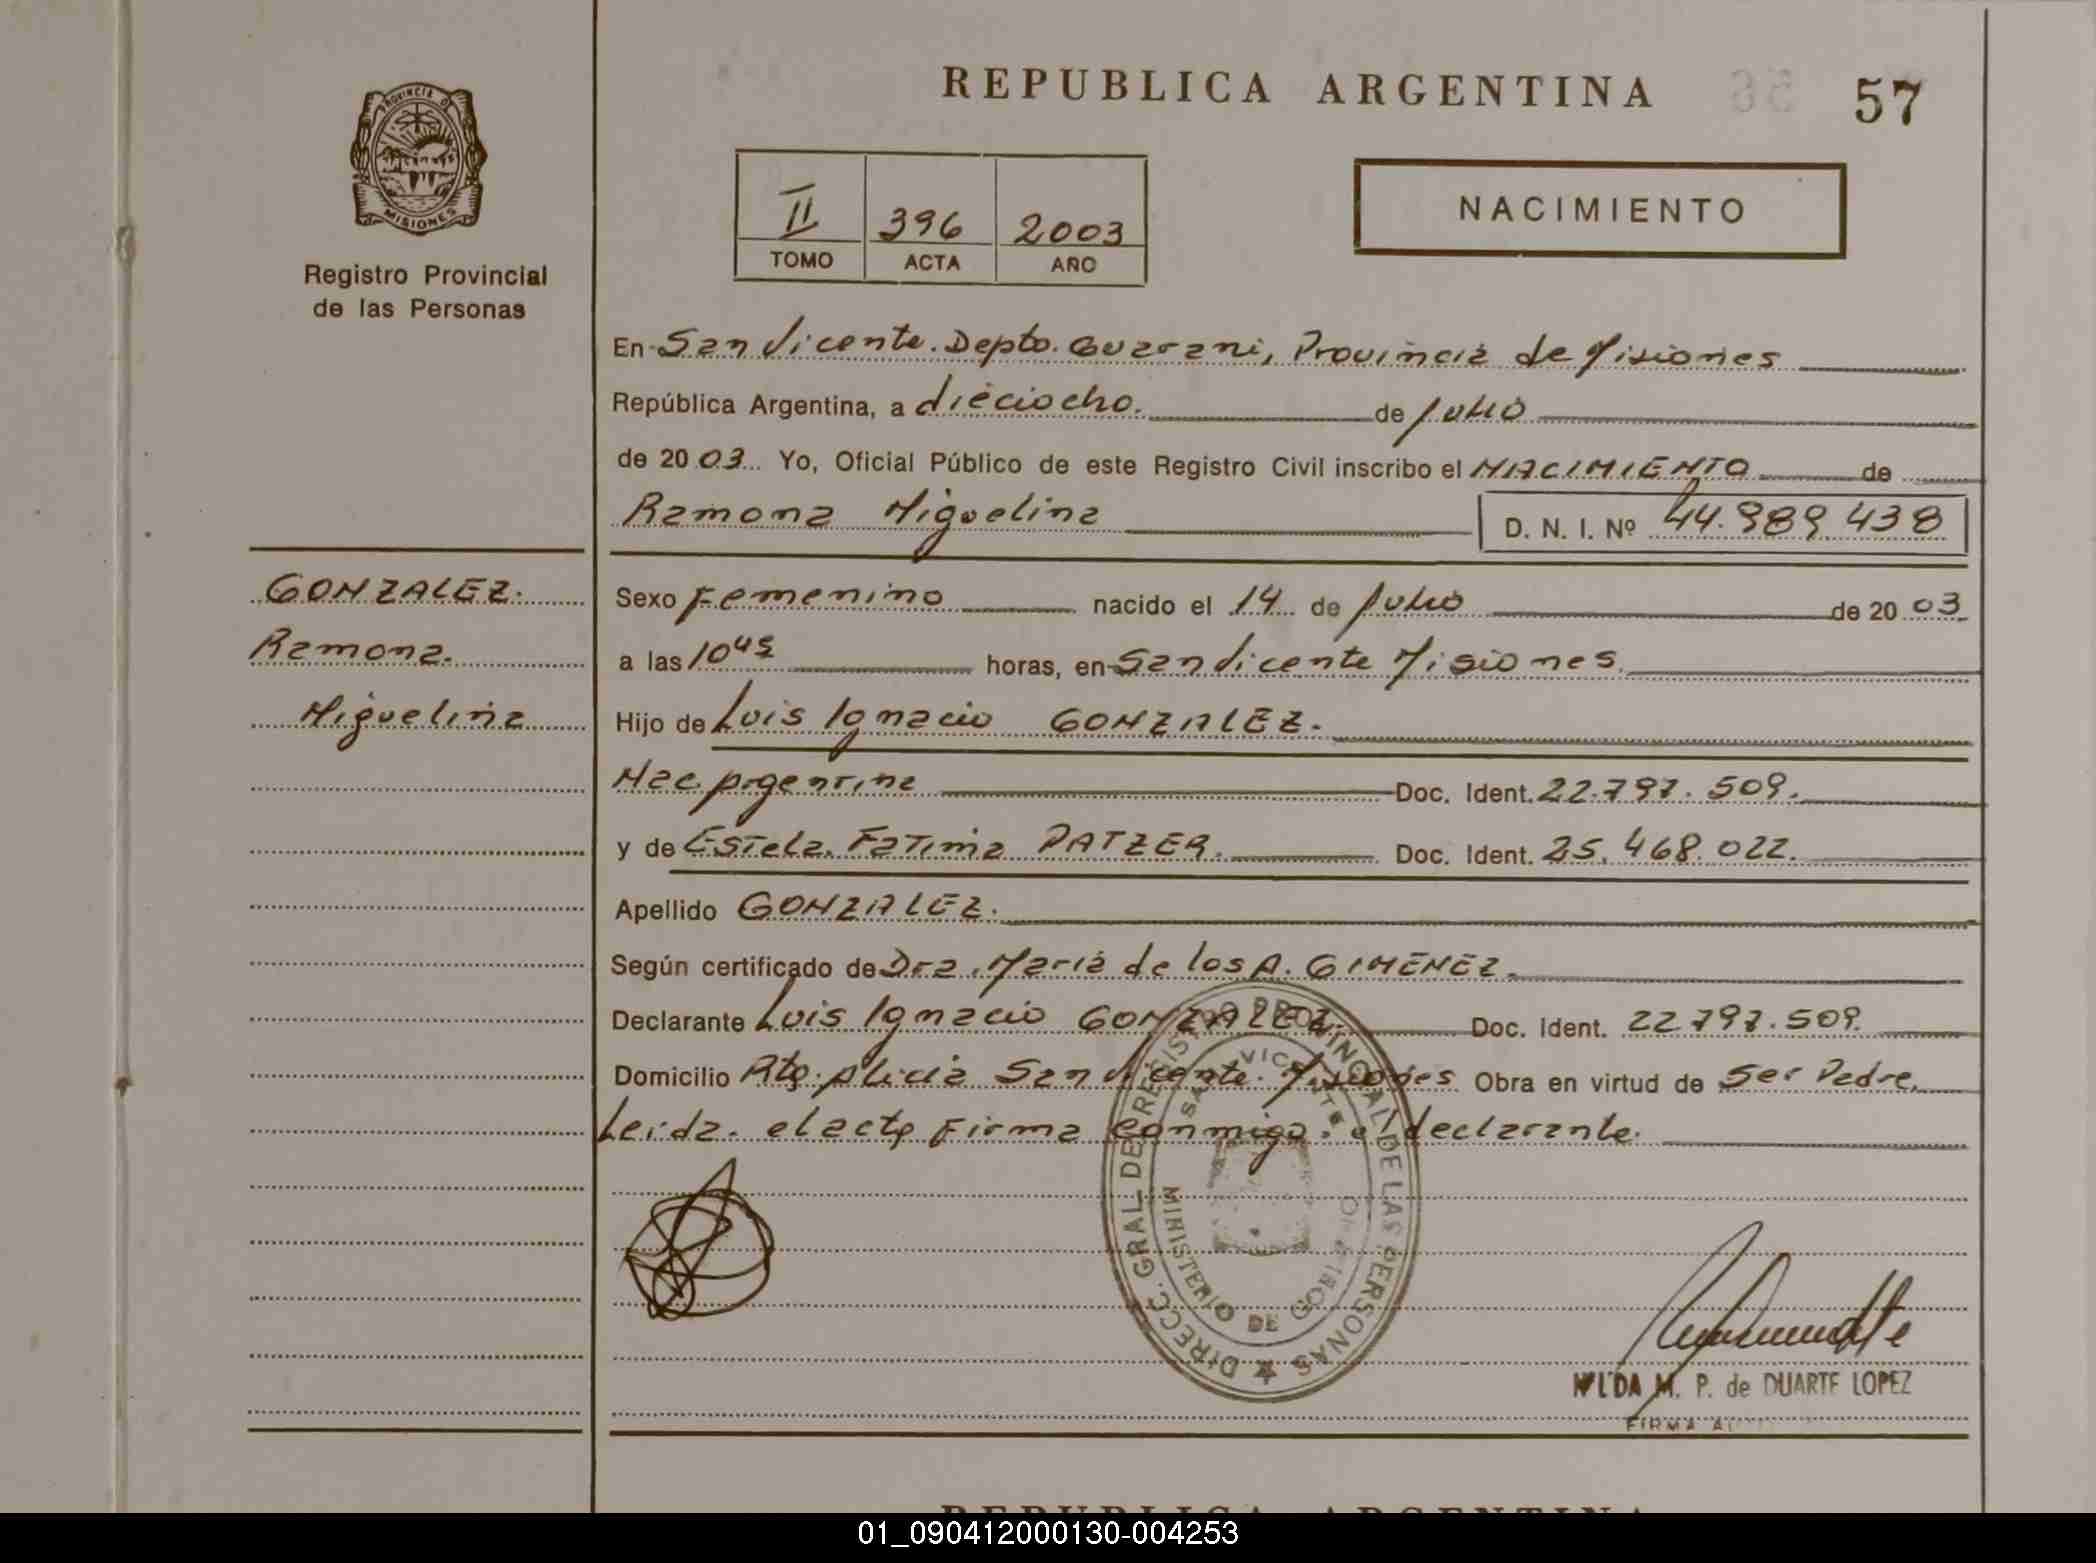 REPUBLICA ARGENTINA
57
PROVINCIA D
MISIONES
Registro Provincial
de las Personas
II 396 2003
TOMO ACTA AÑO
NACIMIENTO
En San Vicente. Depto. Guarani, Provincia de Misiones
República Argentina, a dieciocho. de Julio
de 2003 Yo, Oficial Público de este Registro Civil inscribo el NACIMIENTO de
Ramona Miguelina D. N. I. Nº 44.989.438
GONZALEZ.
Ramona.
Miguelina
Sexo Femenino nacido el 14 de Julio de 2003
a las 10 45 horas, en San Vicente Misiones.
Hijo de Luis Ignacio GONZALEZ.
Nac. Argentina Doc. Ident. 22.797.509.
y de Estela. Fatima PATZER. Doc. Ident. 25.468.022.
Apellido GONZALEZ.
Según certificado de Dra. Maria de los A. GIMENEZ.
Declarante Luis Ignacio GONZALEZ. Doc. Ident. 22.797.509.
Domicilio Alicia San Vicente. Misiones Obra en virtud de Ser Padre.
Leida. el acta Firma conmigo. declarante.
DIRECC. GRAL. DE REGISTRO PROVINCIAL DE LAS PERSONAS
SAN VICENTE
MINISTERIO DE GOBIERNO
M. P. de DUARTE LOPEZ
FIRMA
REPUBLICA ARGENTINA
01_090412000130-004253